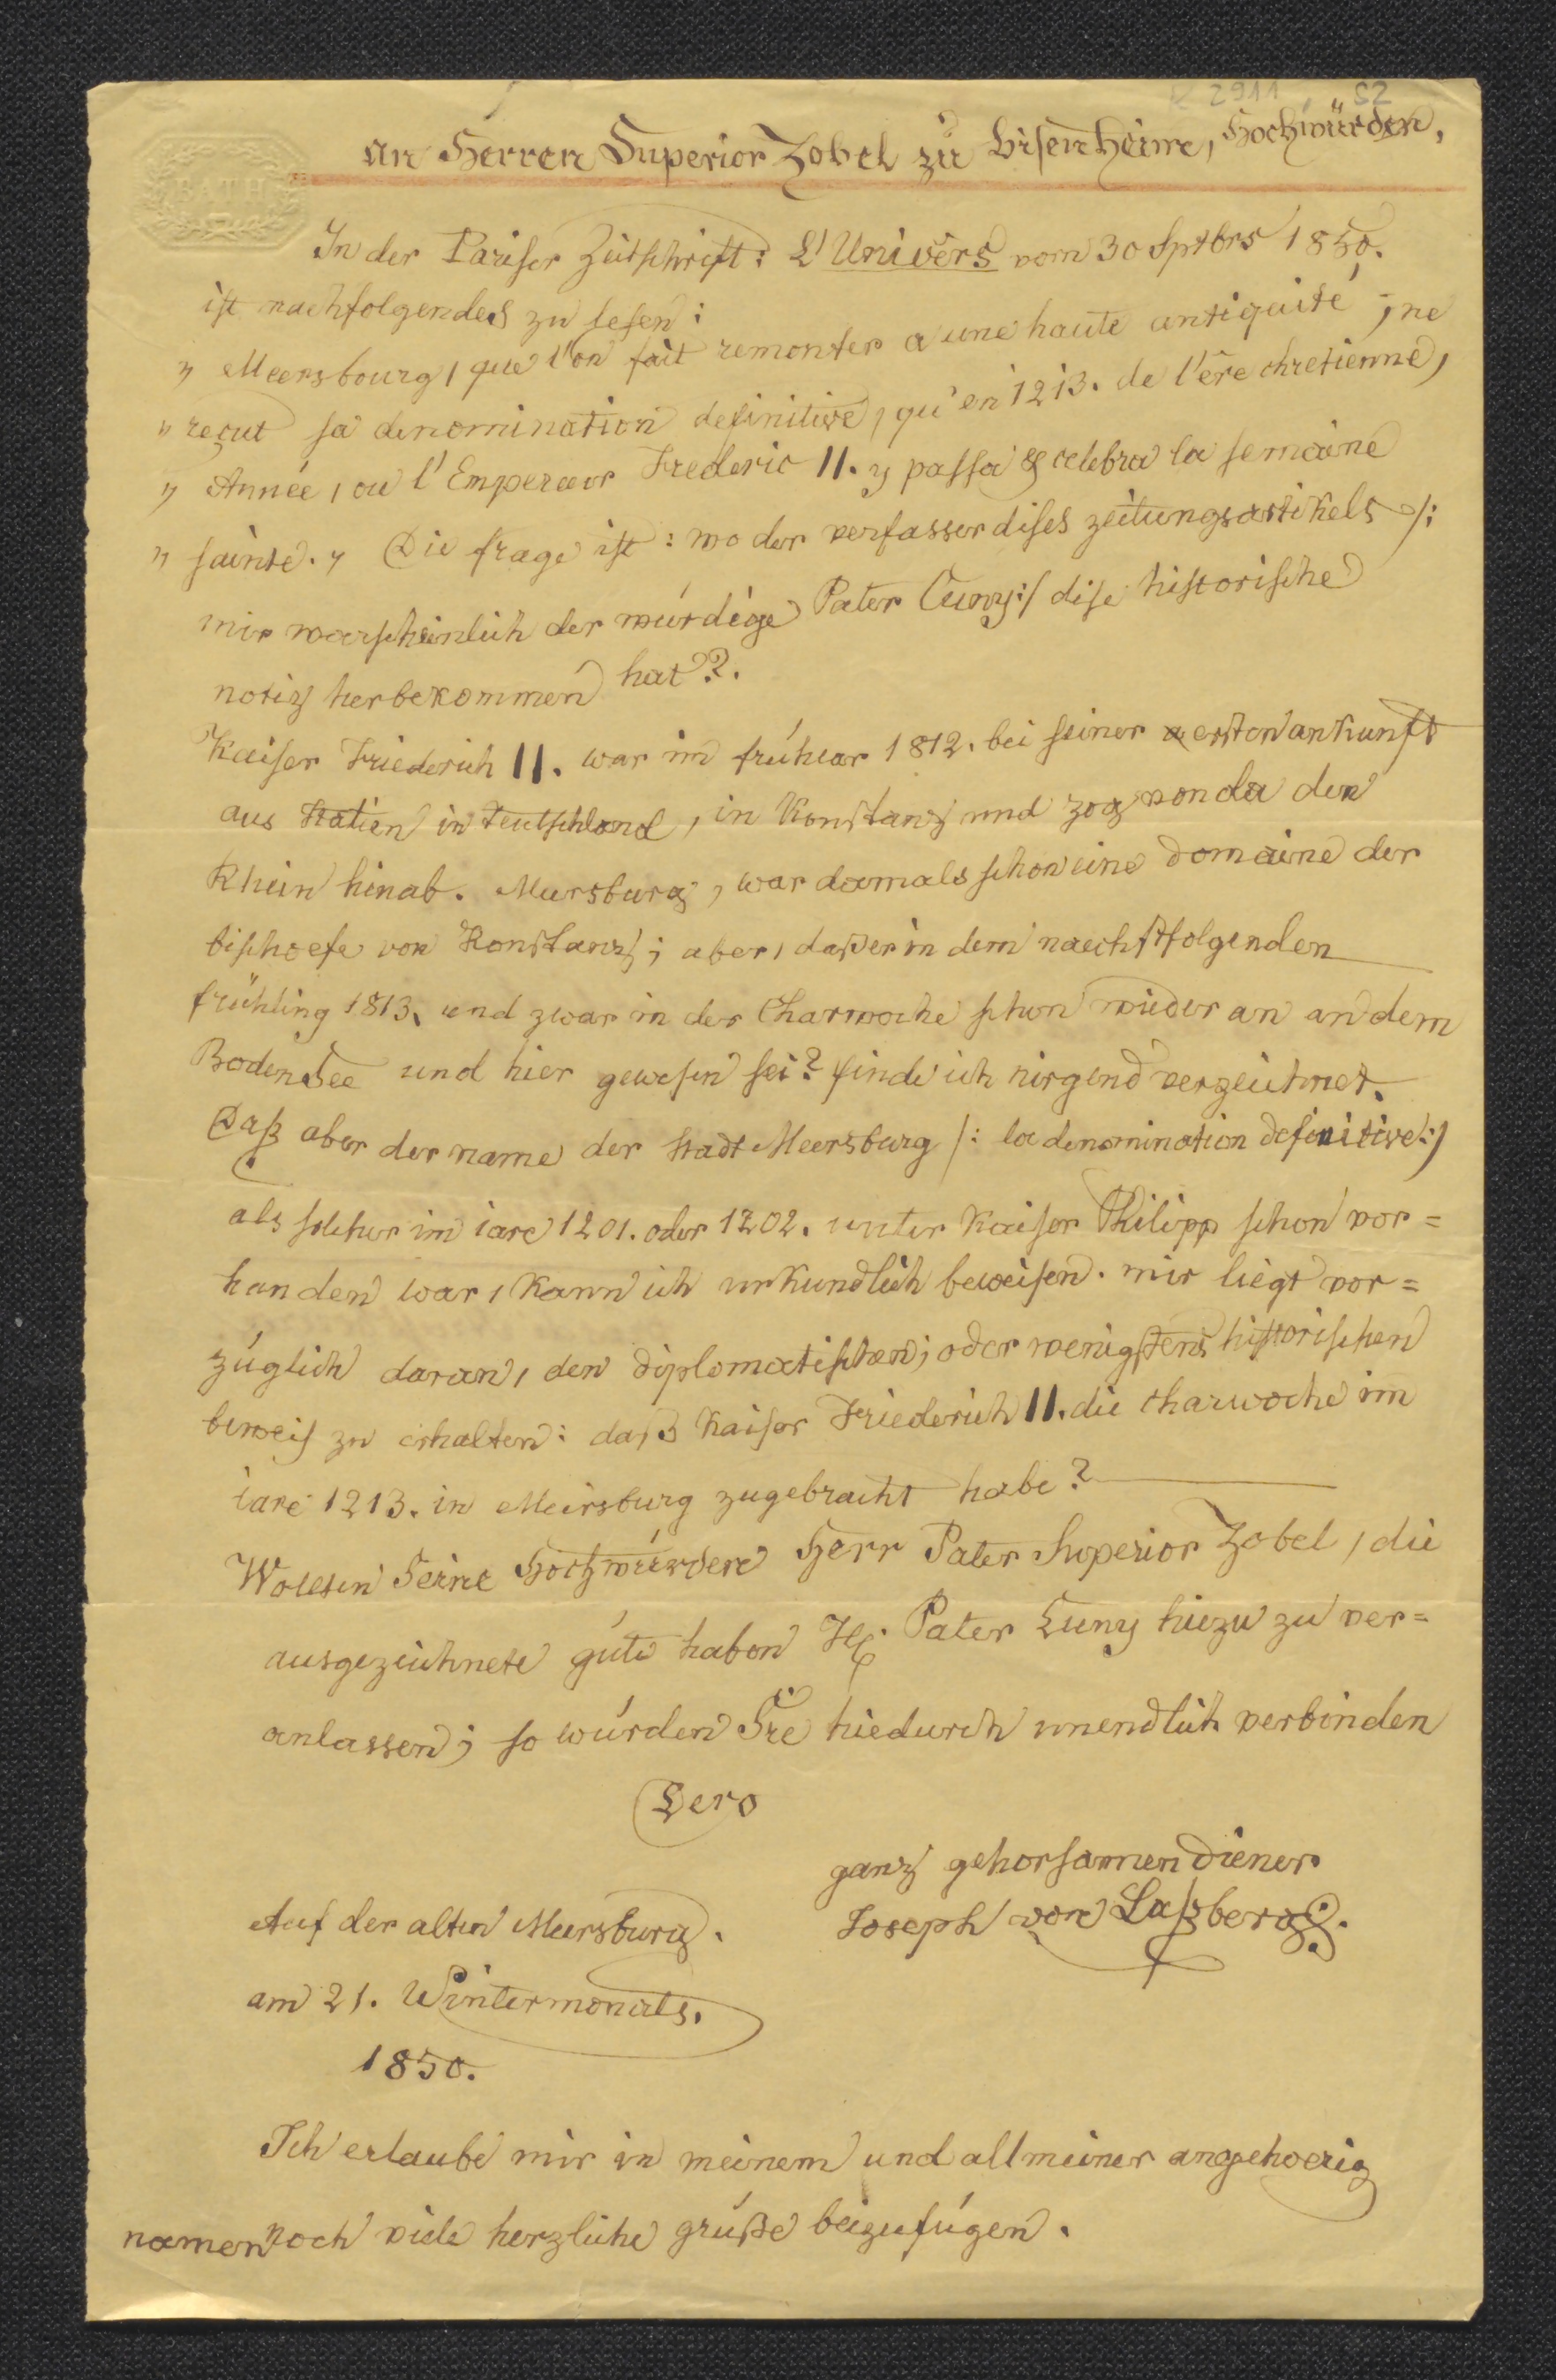 K 2911, S2
BATH
An Herren Superior Zobel zu Ottersheim, Hochwürden,
In der Pariser Zeitschrift: L'Univers vom 30 Sptbrs 1850.
ist nachfolgendes zu lesen:
„ Meersbourg, que l'on fait remonter a une haute antiquité, ne
„ reçut sa denomination definitive, qu'en 1213. de l'ère chretienne,
„ Année, ou l'Empereur Frederic II. y passa & celebra la semaine
„ sainte. „ Die frage ist: wo der verfasser dises zeitungsartikels /:
mir warscheinlich der würdige Pater Cuny :/ dise historische
notiz herbekommen hat?.
Kaiser Friederich II. war im frühear 1812. bei seiner ersten ankunft
aus Italien in Teutschland, in Konstanz und zog von da den
Rhein hinab. Meersburg, war damals schon eine domaine der
bischoefe von Konstanz; aber, daß er in dem naechstfolgenden
frühling 1813. und zwar in der Charwoche schon wieder an an dem
BodenSee und hier gewesen sei? finde ich nirgend verzeichnet.
Daß aber der name der Stadt Meersburg /: la denomination definitive :/
als solcher im iare 1201. oder 1202. unter Kaiser Philipp schon vor=
handen war, kann ich urkundlich beweisen. mir liegt vor=
züglich daran, den diplomatischen; oder wenigstens historischen
beweis zu erhalten: daß Kaiser Friederich II. die charwoche im
iare 1213. in Meersburg zugebracht habe?
Wollten Seine Hochwürden Herr Pater Superior Zobel, die
ausgezeichnete güte haben H. Pater Cuny hiezu zu ver=
anlassen; so würden Sie hiedurch unendlich verbinden
Dero
ganz gehorsamen diener
Joseph von Laßberg.
Auf der alten Meersburg.
am 21. Wintermonats.
1850.
Ich erlaube mir in meinem und all meiner angehoerig
namen noch viele herzliche grüße beizufügen.